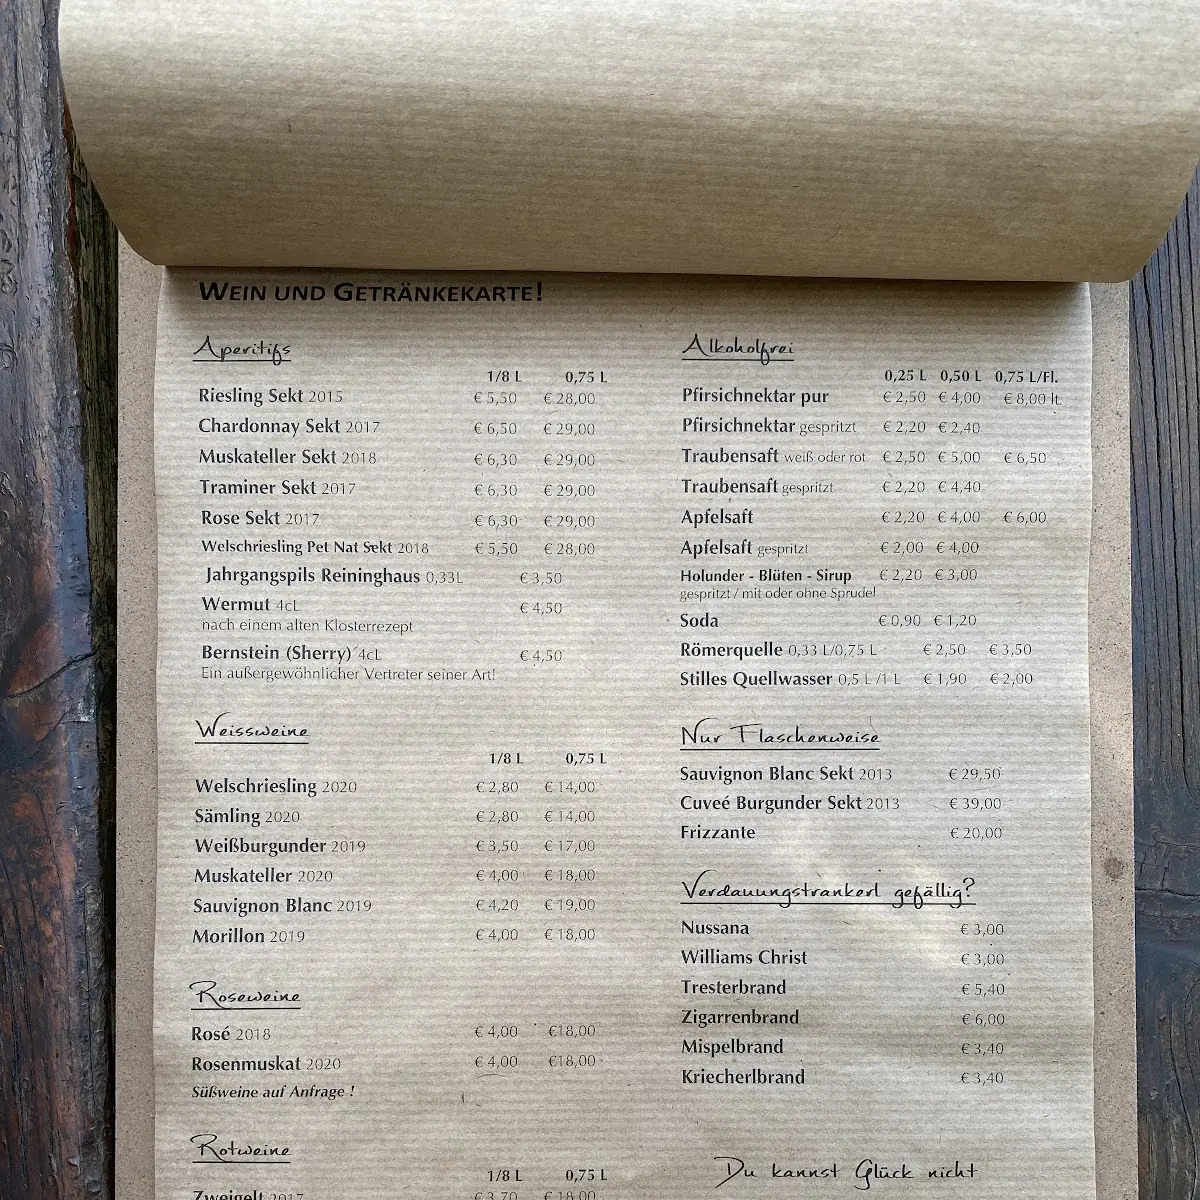 WEIN UND GETRÄNKEKARTE!
Aperitifs
1/8 L 0,75 L
Riesling Sekt 2015 € 5,50 € 28,00
Chardonnay Sekt 2017 € 6,50 € 29,00
Muskateller Sekt 2018 € 6,30 € 29,00
Traminer Sekt 2017 € 6,30 € 29,00
Rose Sekt 2017 € 6,30 € 29,00
Welschriesling Pet Nat Sekt 2018 € 5,50 € 28,00
Jahrgangspils Reininghaus 0,33L € 3,50
Wermut 4cL € 4,50
nach einem alten Klosterrezept
Bernstein (Sherry) 4cL € 4,50
Ein außergewöhnlicher Vertreter seiner Art!
Weissweine
1/8 L 0,75 L
Welschriesling 2020 € 2,80 € 14,00
Sämling 2020 € 2,80 € 14,00
Weißburgunder 2019 € 3,50 € 17,00
Muskateller 2020 € 4,00 € 18,00
Sauvignon Blanc 2019 € 4,20 € 19,00
Morillon 2019 € 4,00 € 18,00
Roseweine
Rosé 2018 € 4,00 €18,00
Rosenmuskat 2020 € 4,00 €18,00
Süßweine auf Anfrage !
Rotweine
1/8 L 0,75 L
Zweigelt 2017 € 3,70 € 18,00
Alkoholfrei
0,25 L 0,50 L 0,75 L/Fl.
Pfirsichnektar pur € 2,50 € 4,00 € 8,00 lt.
Pfirsichnektar gespritzt € 2,20 € 2,40
Traubensaft weiß oder rot € 2,50 € 5,00 € 6,50
Traubensaft gespritzt € 2,20 € 4,40
Apfelsaft € 2,20 € 4,00 € 6,00
Apfelsaft gespritzt € 2,00 € 4,00
Holunder - Blüten - Sirup € 2,20 € 3,00
gespritzt / mit oder ohne Sprudel
Soda € 0,90 € 1,20
Römerquelle 0,33 L/0,75 L € 2,50 € 3,50
Stilles Quellwasser 0,5 L /1 L € 1,90 € 2,00
Nur Flaschenweise
Sauvignon Blanc Sekt 2013 € 29,50
Cuveé Burgunder Sekt 2013 € 39,00
Frizzante € 20,00
Verdauungstrankerl gefällig?
Nussana € 3,00
Williams Christ € 3,00
Tresterbrand € 5,40
Zigarrenbrand € 6,00
Mispelbrand € 3,40
Kriecherlbrand € 3,40
Du kannst Glück nicht